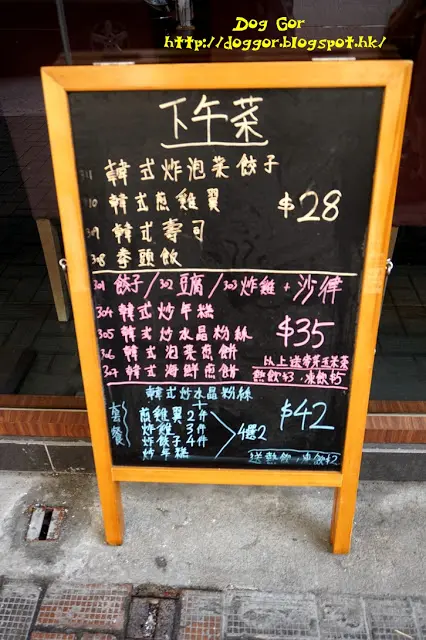 Dog Gor
http://doggor.blogspot.hk/
下午菜
311 韓式炸泡菜餃子
310 韓式煎雞翼
309 韓式壽司
308 拳頭飯
$28
301 餃子/302 豆腐/303 炸雞+沙律
304 韓式炒年糕
305 韓式炒水晶粉絲
306 韓式泡菜煎餅
307 韓式海鮮煎餅
$35
以上送粟米茶
熱飲+3，凍飲+5
韓式炒水晶粉絲
+
套餐
煎雞翼 2件
炸雞 3件
炸餃子 4件
炒年糕
4選2
$42
送熱飲，凍飲+2